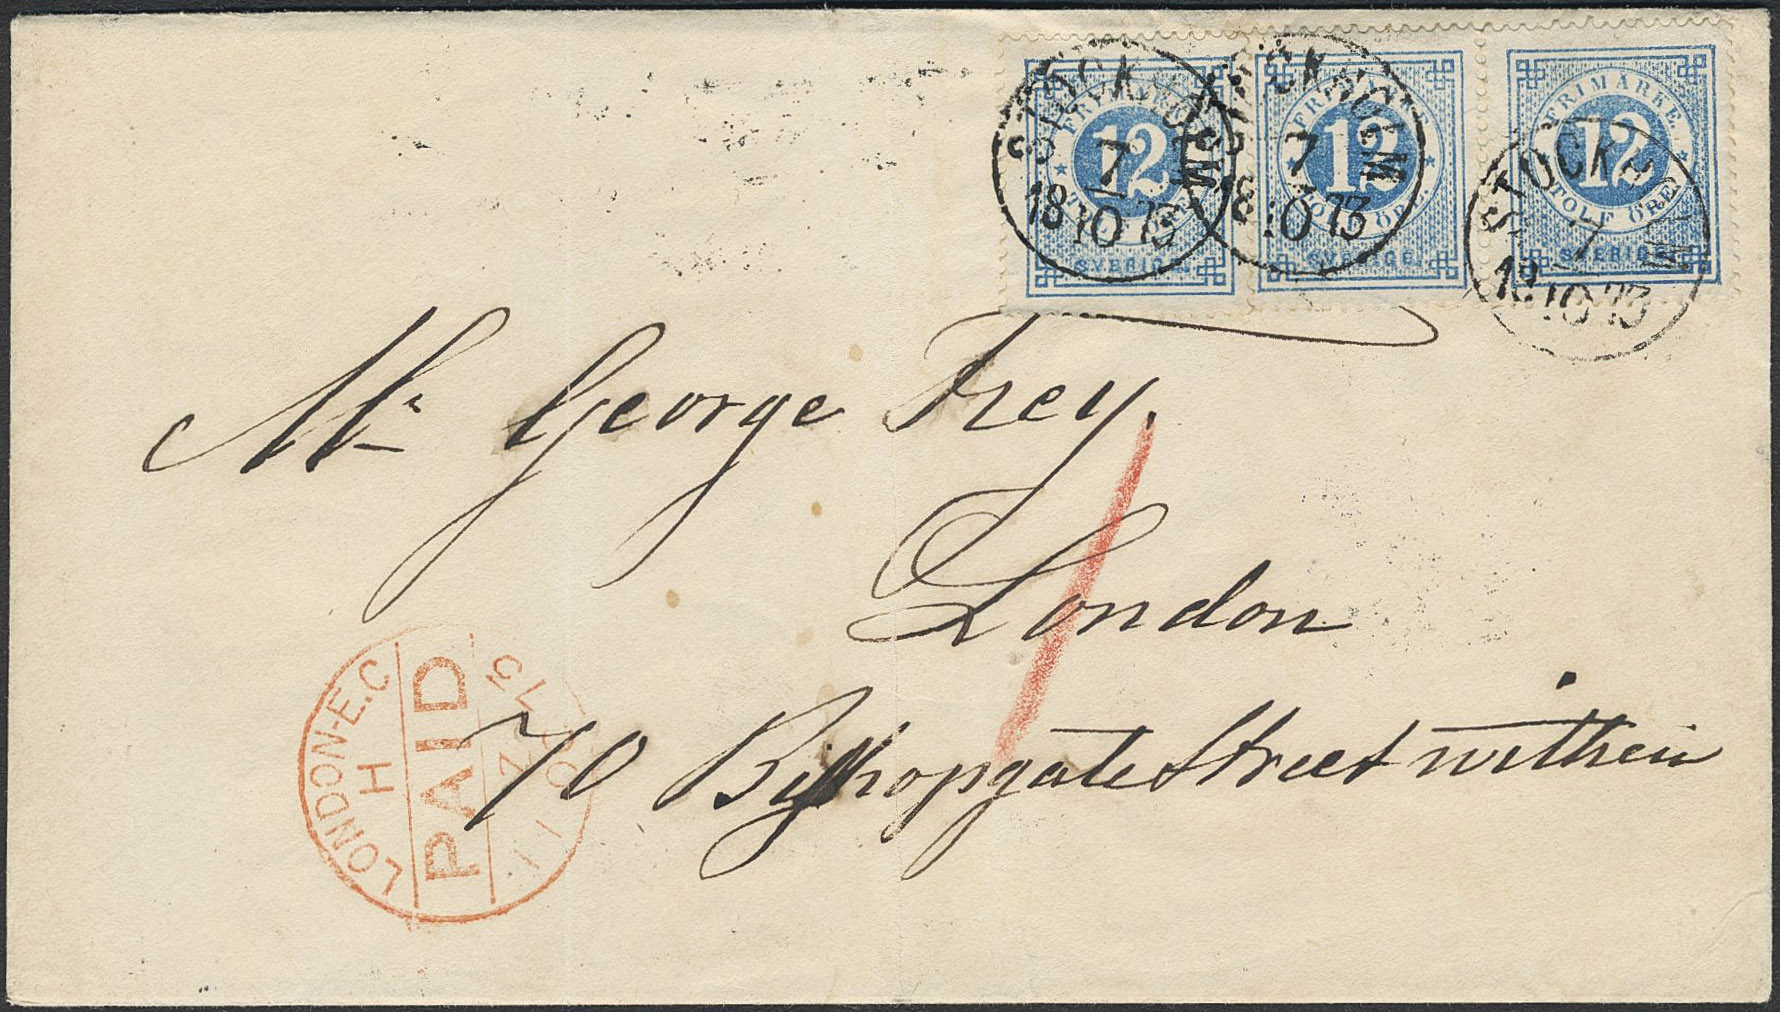 FRIMÄRKE. 12 TOLF ÖRE SVERIGE
FRIMÄRKE 12 TOLF ÖRE SVERIGE.
FRIMÄRKE. 12 TOLF ÖRE. SVERIGE
STOCKHOLM 7 10 1873
STOCKHOLM 7 10 1873
STOCKHOLM 7 10 1873
Mr George Frey.
London
70 Bishopgate Street within
LONDON-E.C
H
PAID
11 OC 73